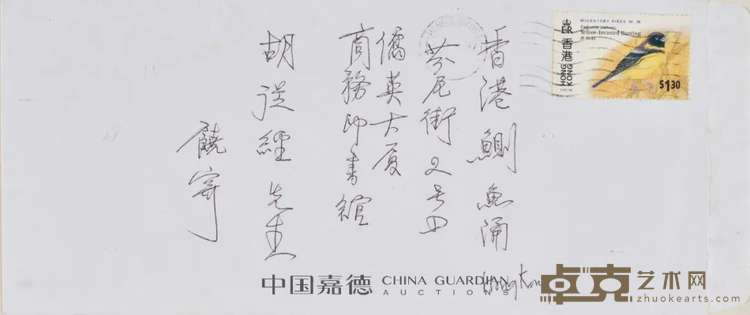 香港鰂魚涌
芬尼街2号D
僑英大廈
商務印書館
胡從經先生
饒寄
Hong Kong
MIGRATORY BIRDS 候鳥
Yellow-breasted Bunting
香港
HONG KONG
$1.30
中国嘉德 CHINA GUARDIAN
AUCTIONS
卓克艺术网
zhuokearts.com